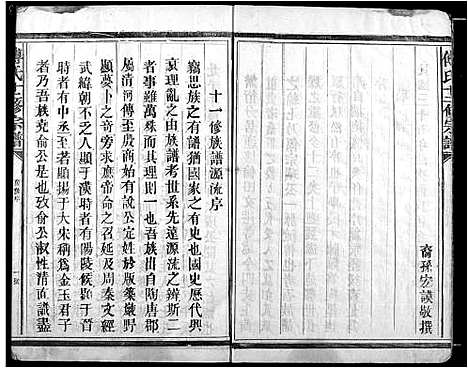 傅氏十二修宗譜
裔孫宏謨敬撰
十一修族譜源流序
竊思族之有譜猶國家之有史也國史歷代興
衰理亂之由族譜考世系先遠源流之辨斯二
者事雖萬殊而其理則一也吾族出自陶唐郡
屬清河傳至成周賜公定姓於版築巖野
顯夢賚於商宗膺帝命之召延及周秦文經
武緯朝不乏人顯于漢時者有陽陵候顯于晉
時者有中丞至者顯揚于大宋稱爲金玉君子
者乃吾族堯俞公是也攷俞公淑性清直識盡
傅氏十二修宗譜